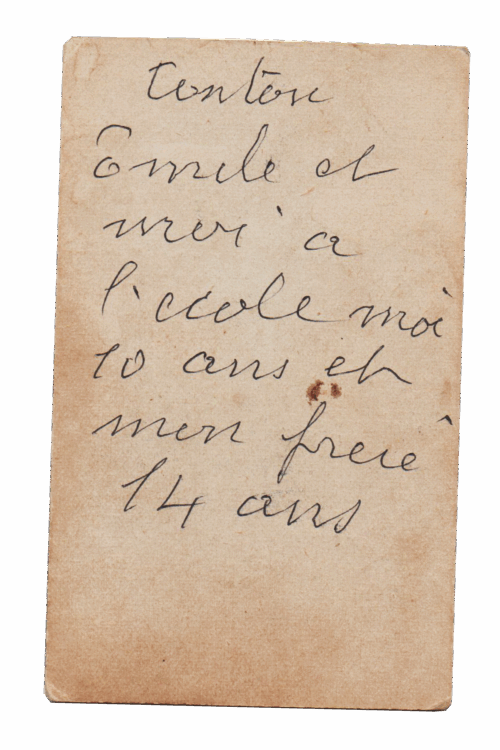 Tonton
Emile et
moi a
l'école moi
10 ans et
mon frere
14 ans